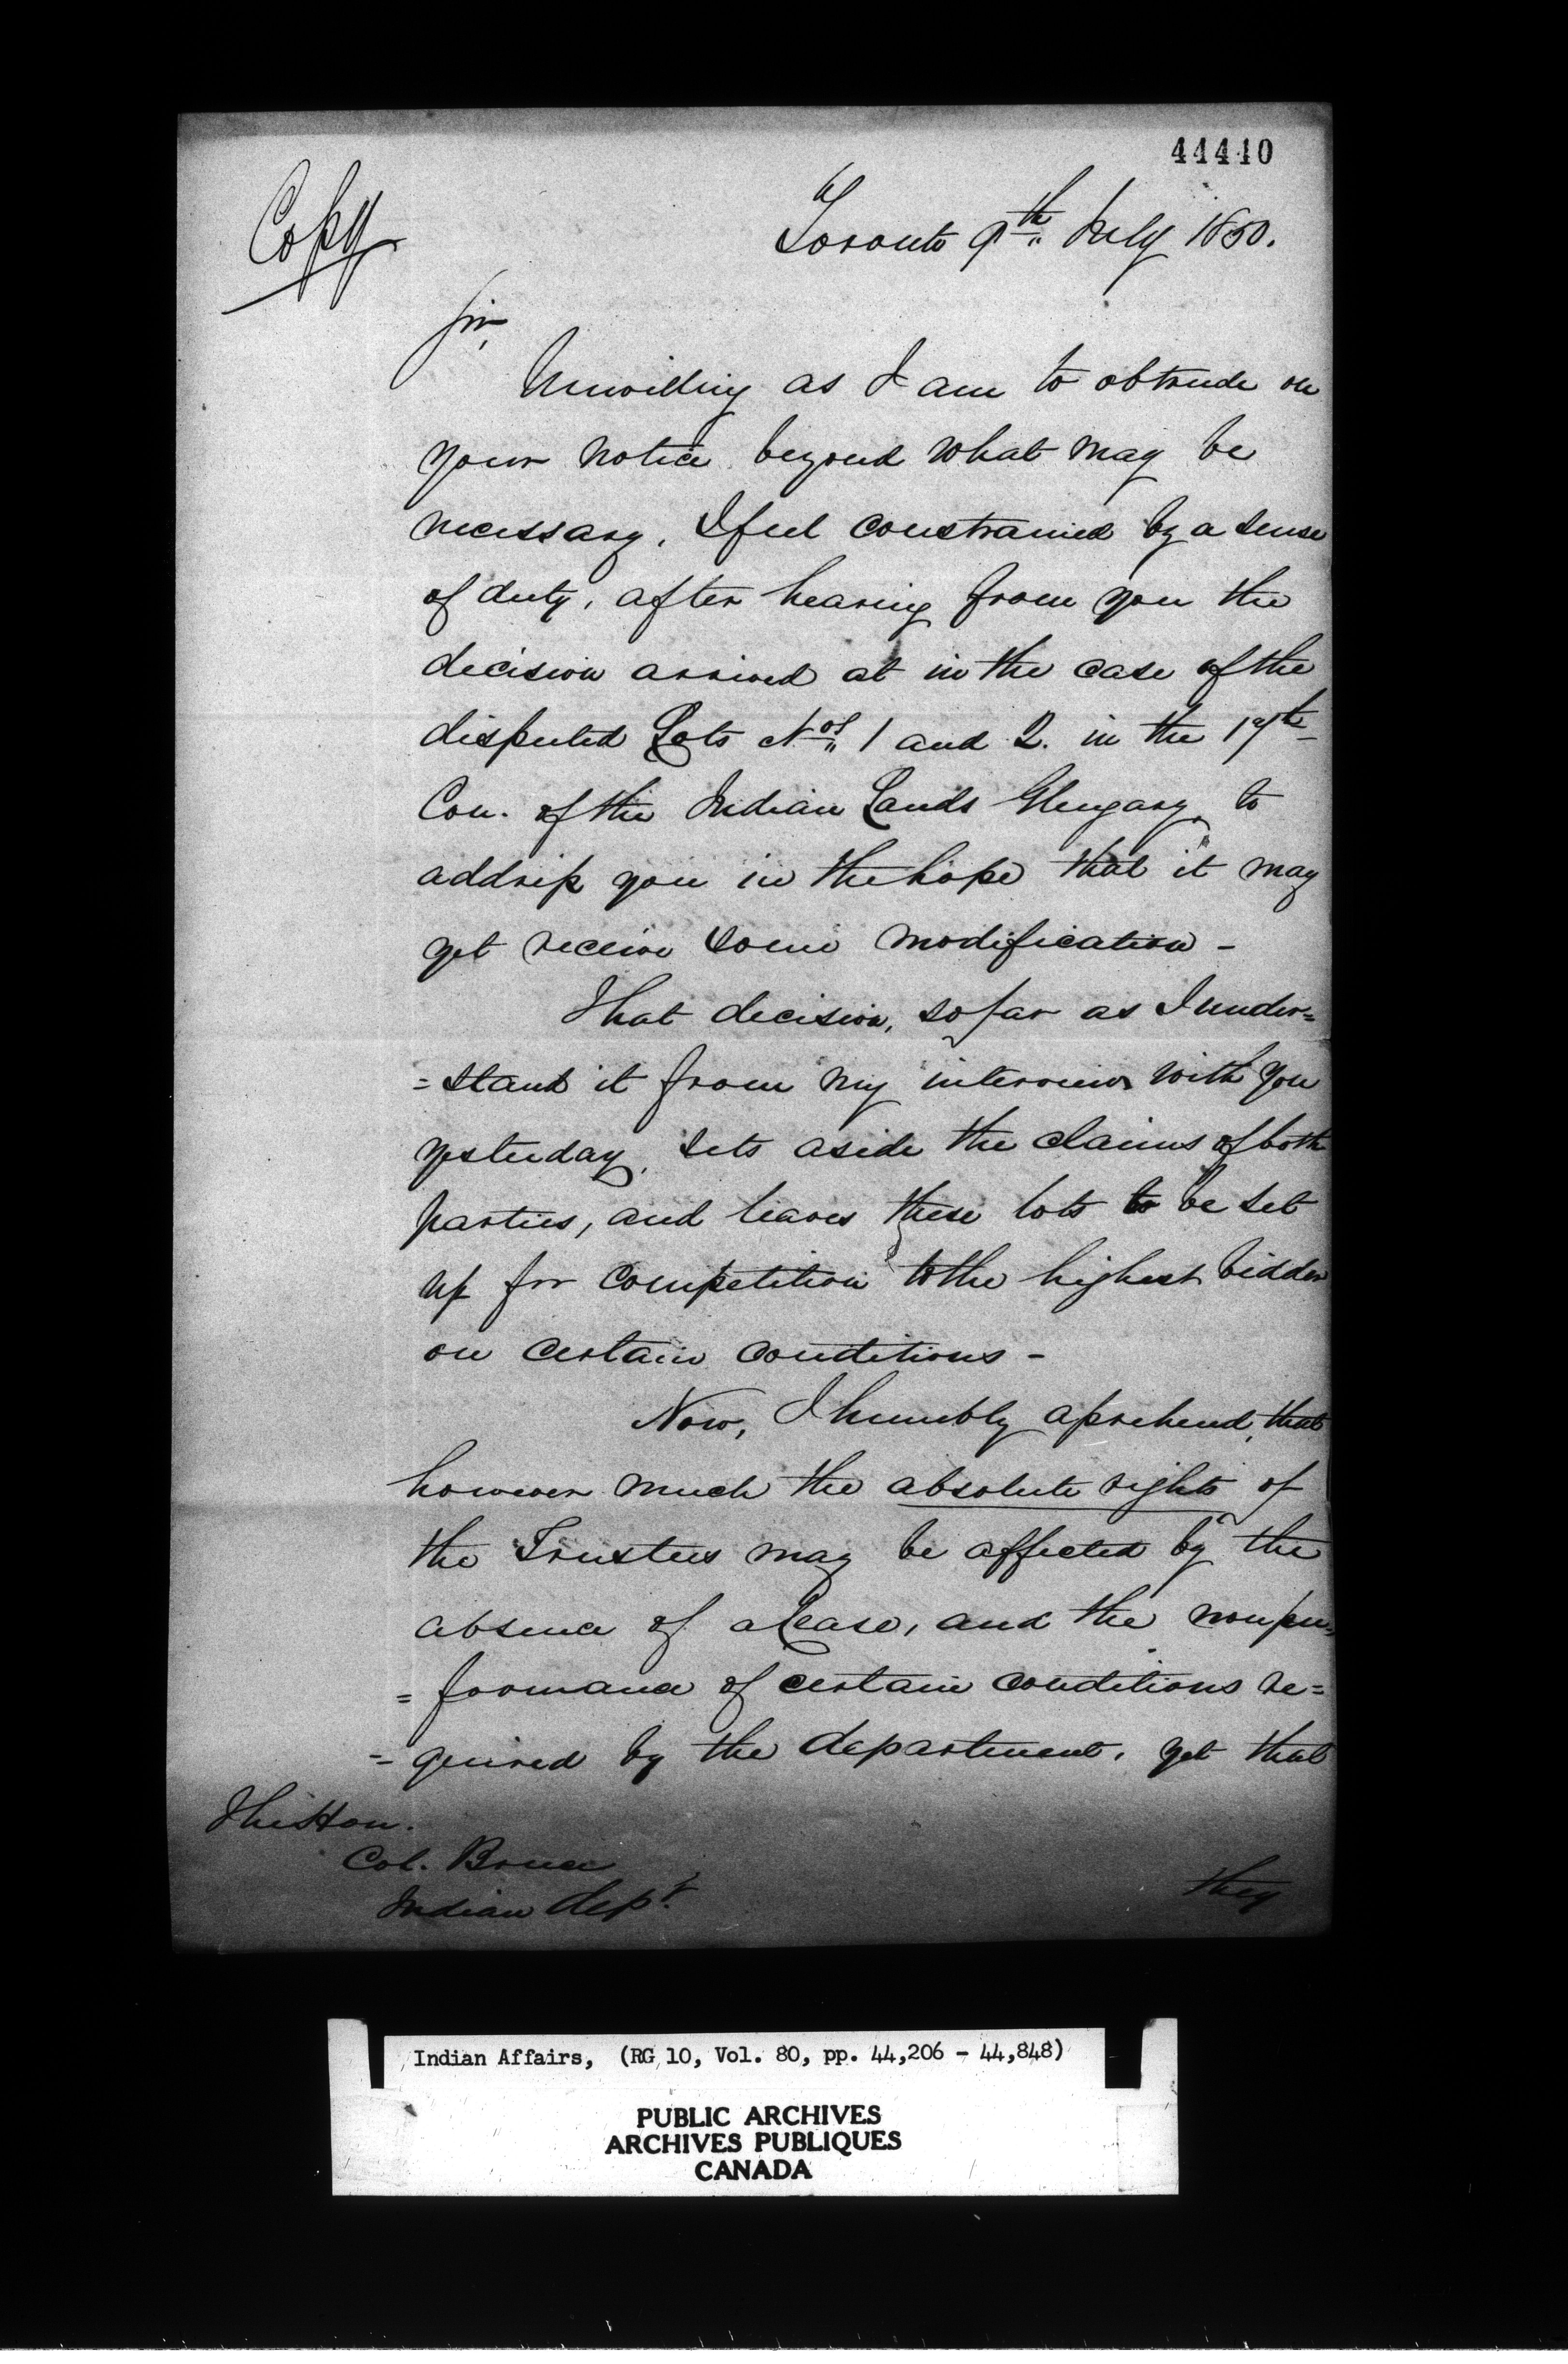 44440
Copy
Toronto 9th July 1850.
Sir,
Unwilling as I am to obtrude on
your notice beyond what may be
necessary, I feel constrained by a sense
of duty, after hearing from you the
decision arrived at in the case of the
disputed Lots Nos 1 and 2. in the 17th
Con. of the Indian Lands Glengary, to
address you in the hope that it may
yet receive some modification -
That decision, so far as I under=
=stand it from my interview with you
yesterday, sets aside the claims of both
parties, and leaves these lots to be set
up for competition to the highest bidder
on certain conditions -
Now, I humbly aprehend, that
however much the absolute rights of
the Trustees may be affected by the
absence of a Lease, and the nonper=
=formance of certain conditions re=
=quired by the department, yet that
The Hon.
Col. Bruce
Indian Dept.
they
Indian Affairs, (RG 10, Vol. 80, pp. 44,206 - 44,848)
PUBLIC ARCHIVES
ARCHIVES PUBLIQUES
CANADA